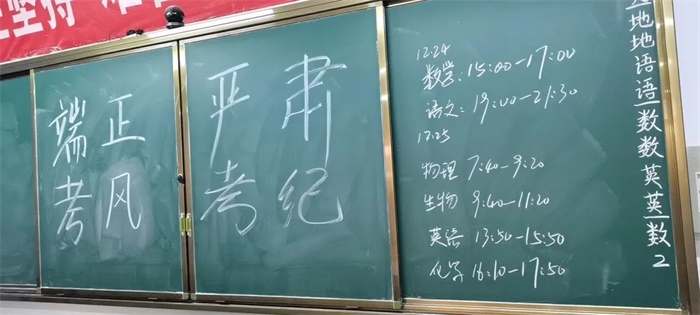 坚持
端正
考风
严肃
考纪
12.24
数学: 15:00-17:00
语文: 19:00-21:30
12.25
物理 7:40-9:20
生物 9:40-11:20
英语 13:50-15:50
化学 16:10-17:50
地地语语数数英英数2